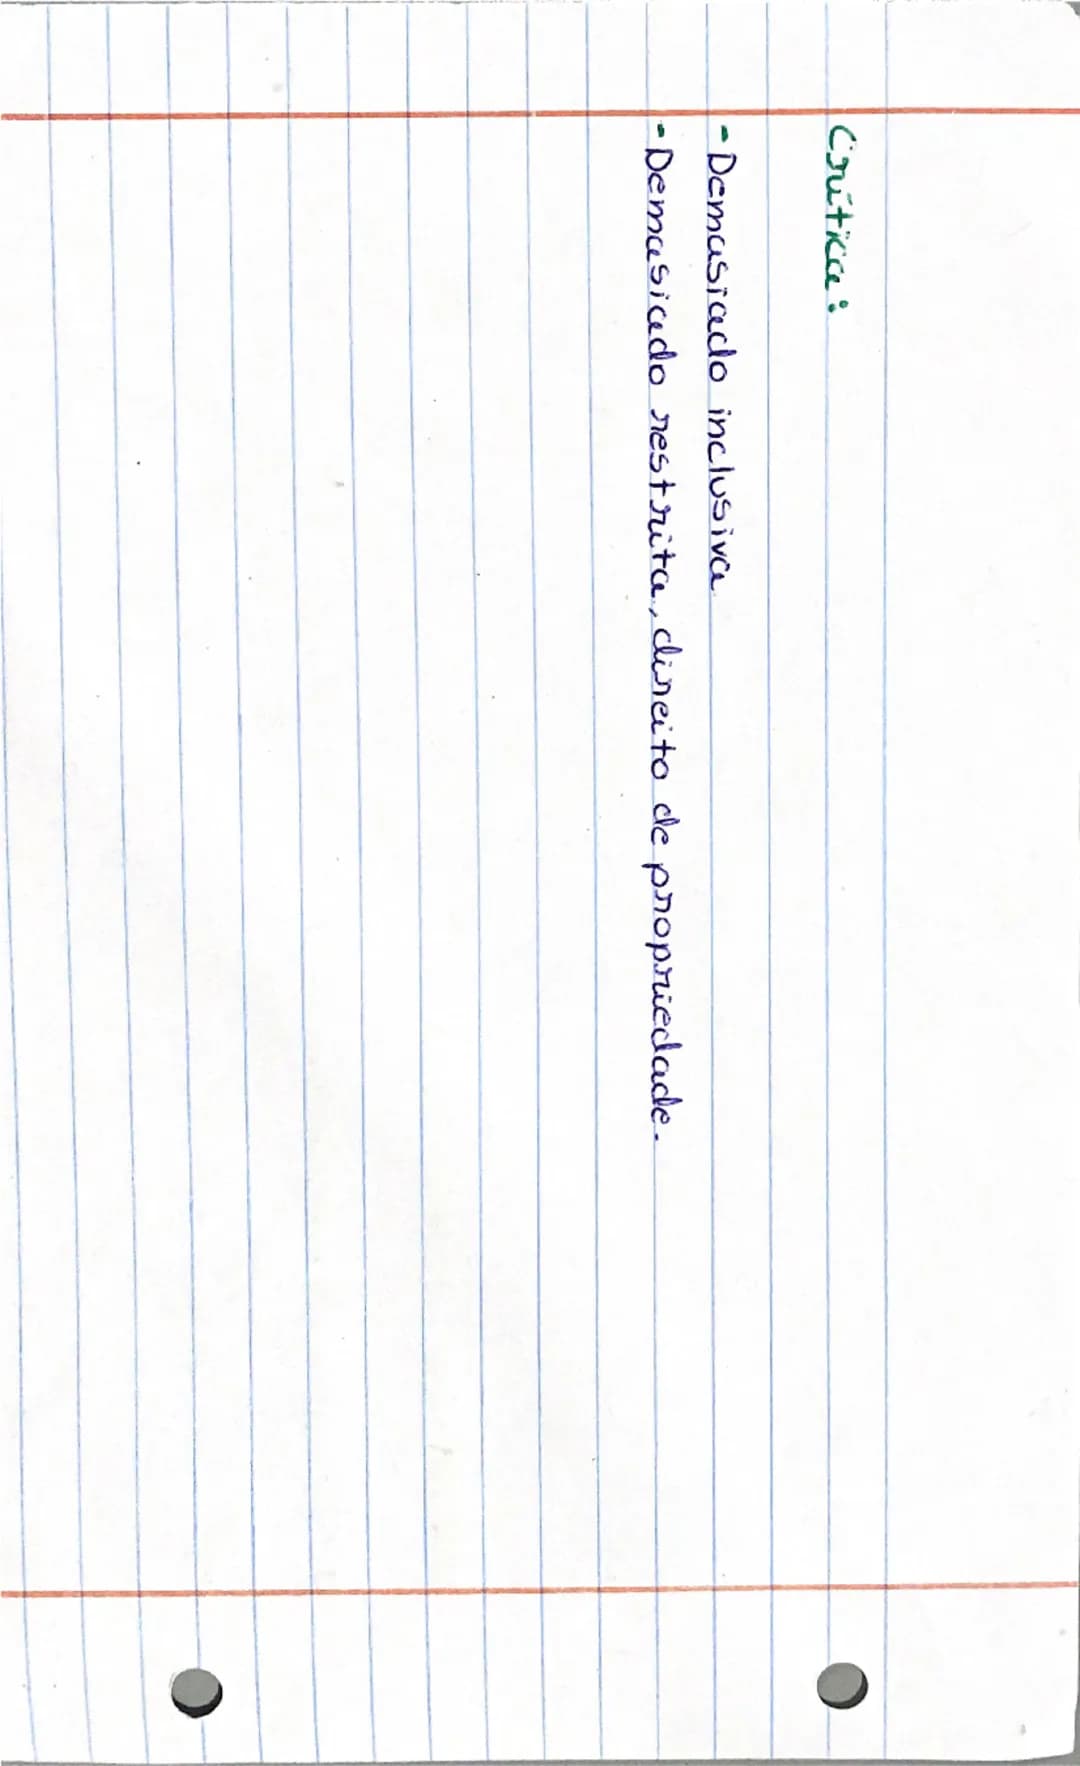 Crítica:
- Demasiado inclusiva
- Demasiado restrita, direito de propriedade.